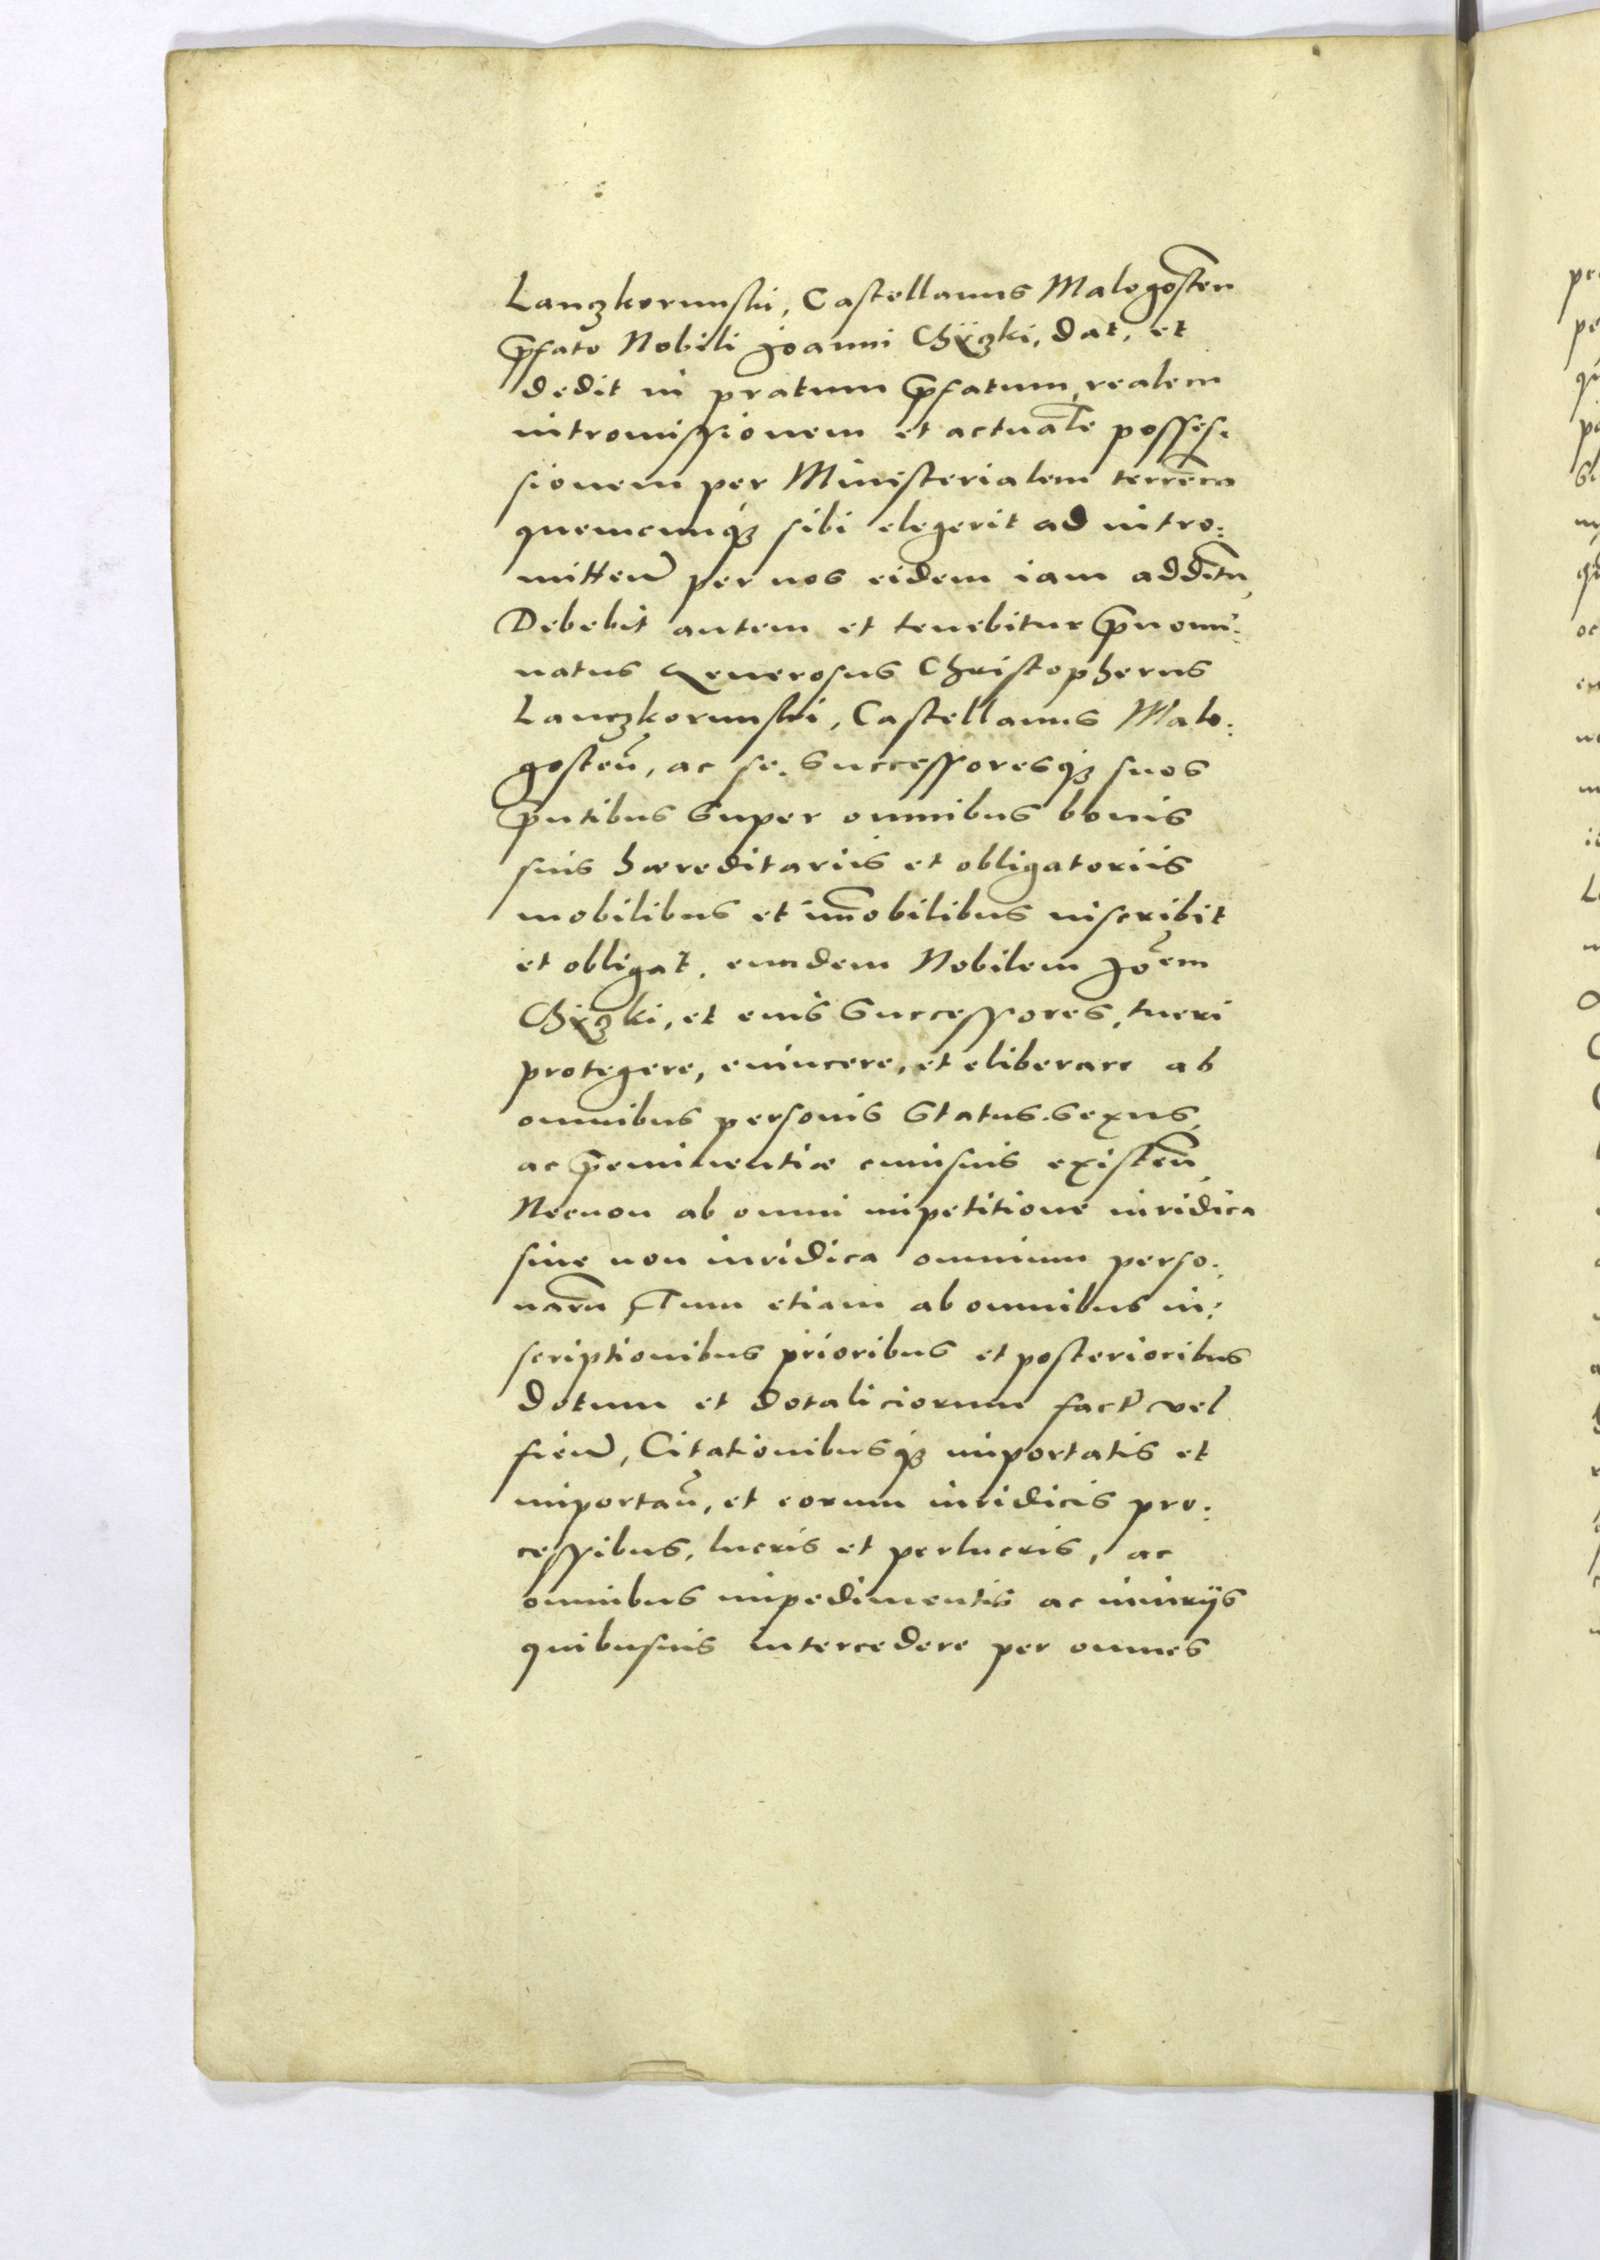 Lanczkorunski, Castellanus Malogosten̄
p̄fato Nobili Joanni Chÿczki, dat, et
dedit in pratum p̄fatum, realem
intromissionem et actualē posses:
sionem per Ministerialem terrēm
quemcunq; sibi elegerit ad intro:
mitten̄ per nos eidem iam additū,
Debebit autem et tenebitur p̄nomi:
natus Generosus Christopherus
Lanczkorunski, Castellanus Malo:
gosten̄, ac se. Successoresq; suos
p̄ntibus super omnibus bonis
suis hæreditariis et obligatoriis
mobilibus et im̄obilibus inscribit
et obligat. eundem Nobilem Joēm
Chÿczki, et eius Successores, tueri
protegere, euincere, et eliberare ab
omnibus personis Status. Sexus,
ac p̄eminentiæ cuiusuis existen̄,
Necnon ab omni impetitione iuridica
siue non iuridica omnium perso:
narū, Tum etiam ab omnibus in:
scriptionibus prioribus et posterioribus
dotum et dotaliciorum fact̄ vel
fien̄, Citationibusq; importatis et
importan̄, et eorum iuridicis pro:
cessibus, lucris et perlucris, ac
omnibus impedimentis ac iniurijs
quibusuis intercedere per omnes